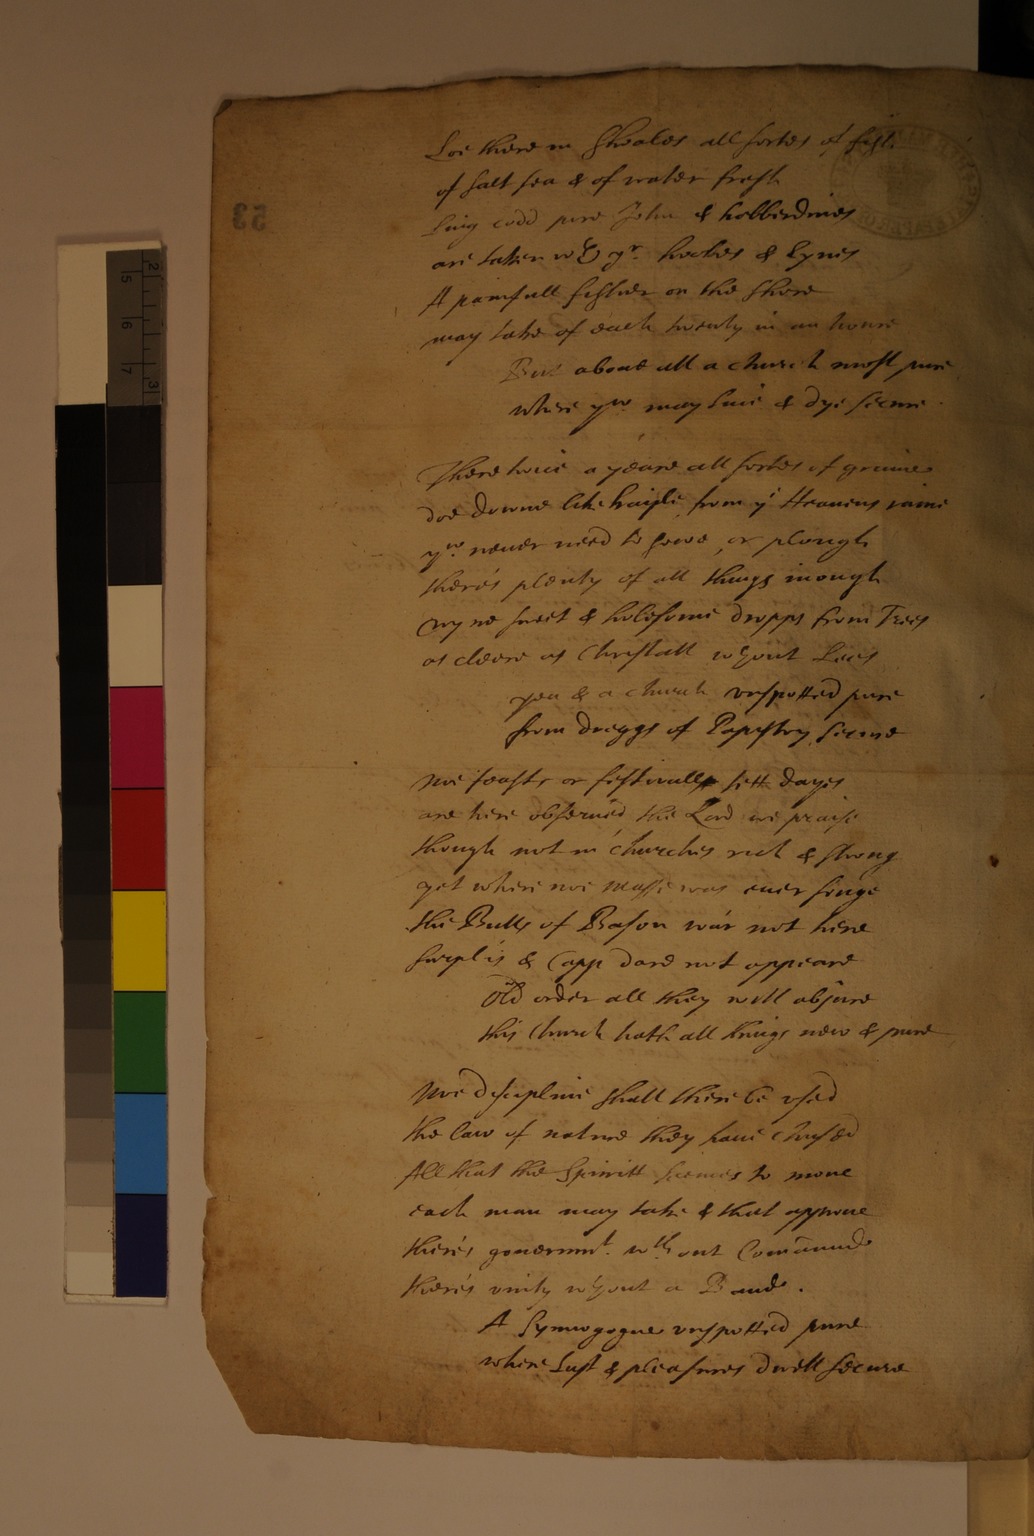 Loe there in Sholes all sortes of fish
of salt sea & of water fresh
Ling codd pore John & habberdines
are taken wth yr hookes & Lynes
A painfull fisher on the shore
may take of each twenty in an houre
But aboue all a church most pure
where yow may liue & dye secure.
There twice a yeare all sortes of graine
doe downe like haile from ye Heauens raine
yow neuer need to sowe, or plough
there's plenty of all things inough
wyne sweet & holesome dropps from Trees
as cleere as Christall wthout Lees
yea & a church vnspotted pure
from dreggs of Papistry secure
Noe feasts or festiuall sett dayes
are here obserued the Lord we praise
though not in Churches rich & strong
yet where noe Masse was euer songe
the Bulls of Bason roar not here
surplis & Capp dare not appeare
Old order all they will abjure
this Church hath all things new & pure
Noe discipline shall there be vsed
the law of nature they haue chused
All that the Spiritt seemes to moue
each man may take & that approue
there's gouernmt. wthout Comaund
there's vnity wthout a Band.
A Synagogue vnspotted pure
where Lust & pleasures dwell secure
53